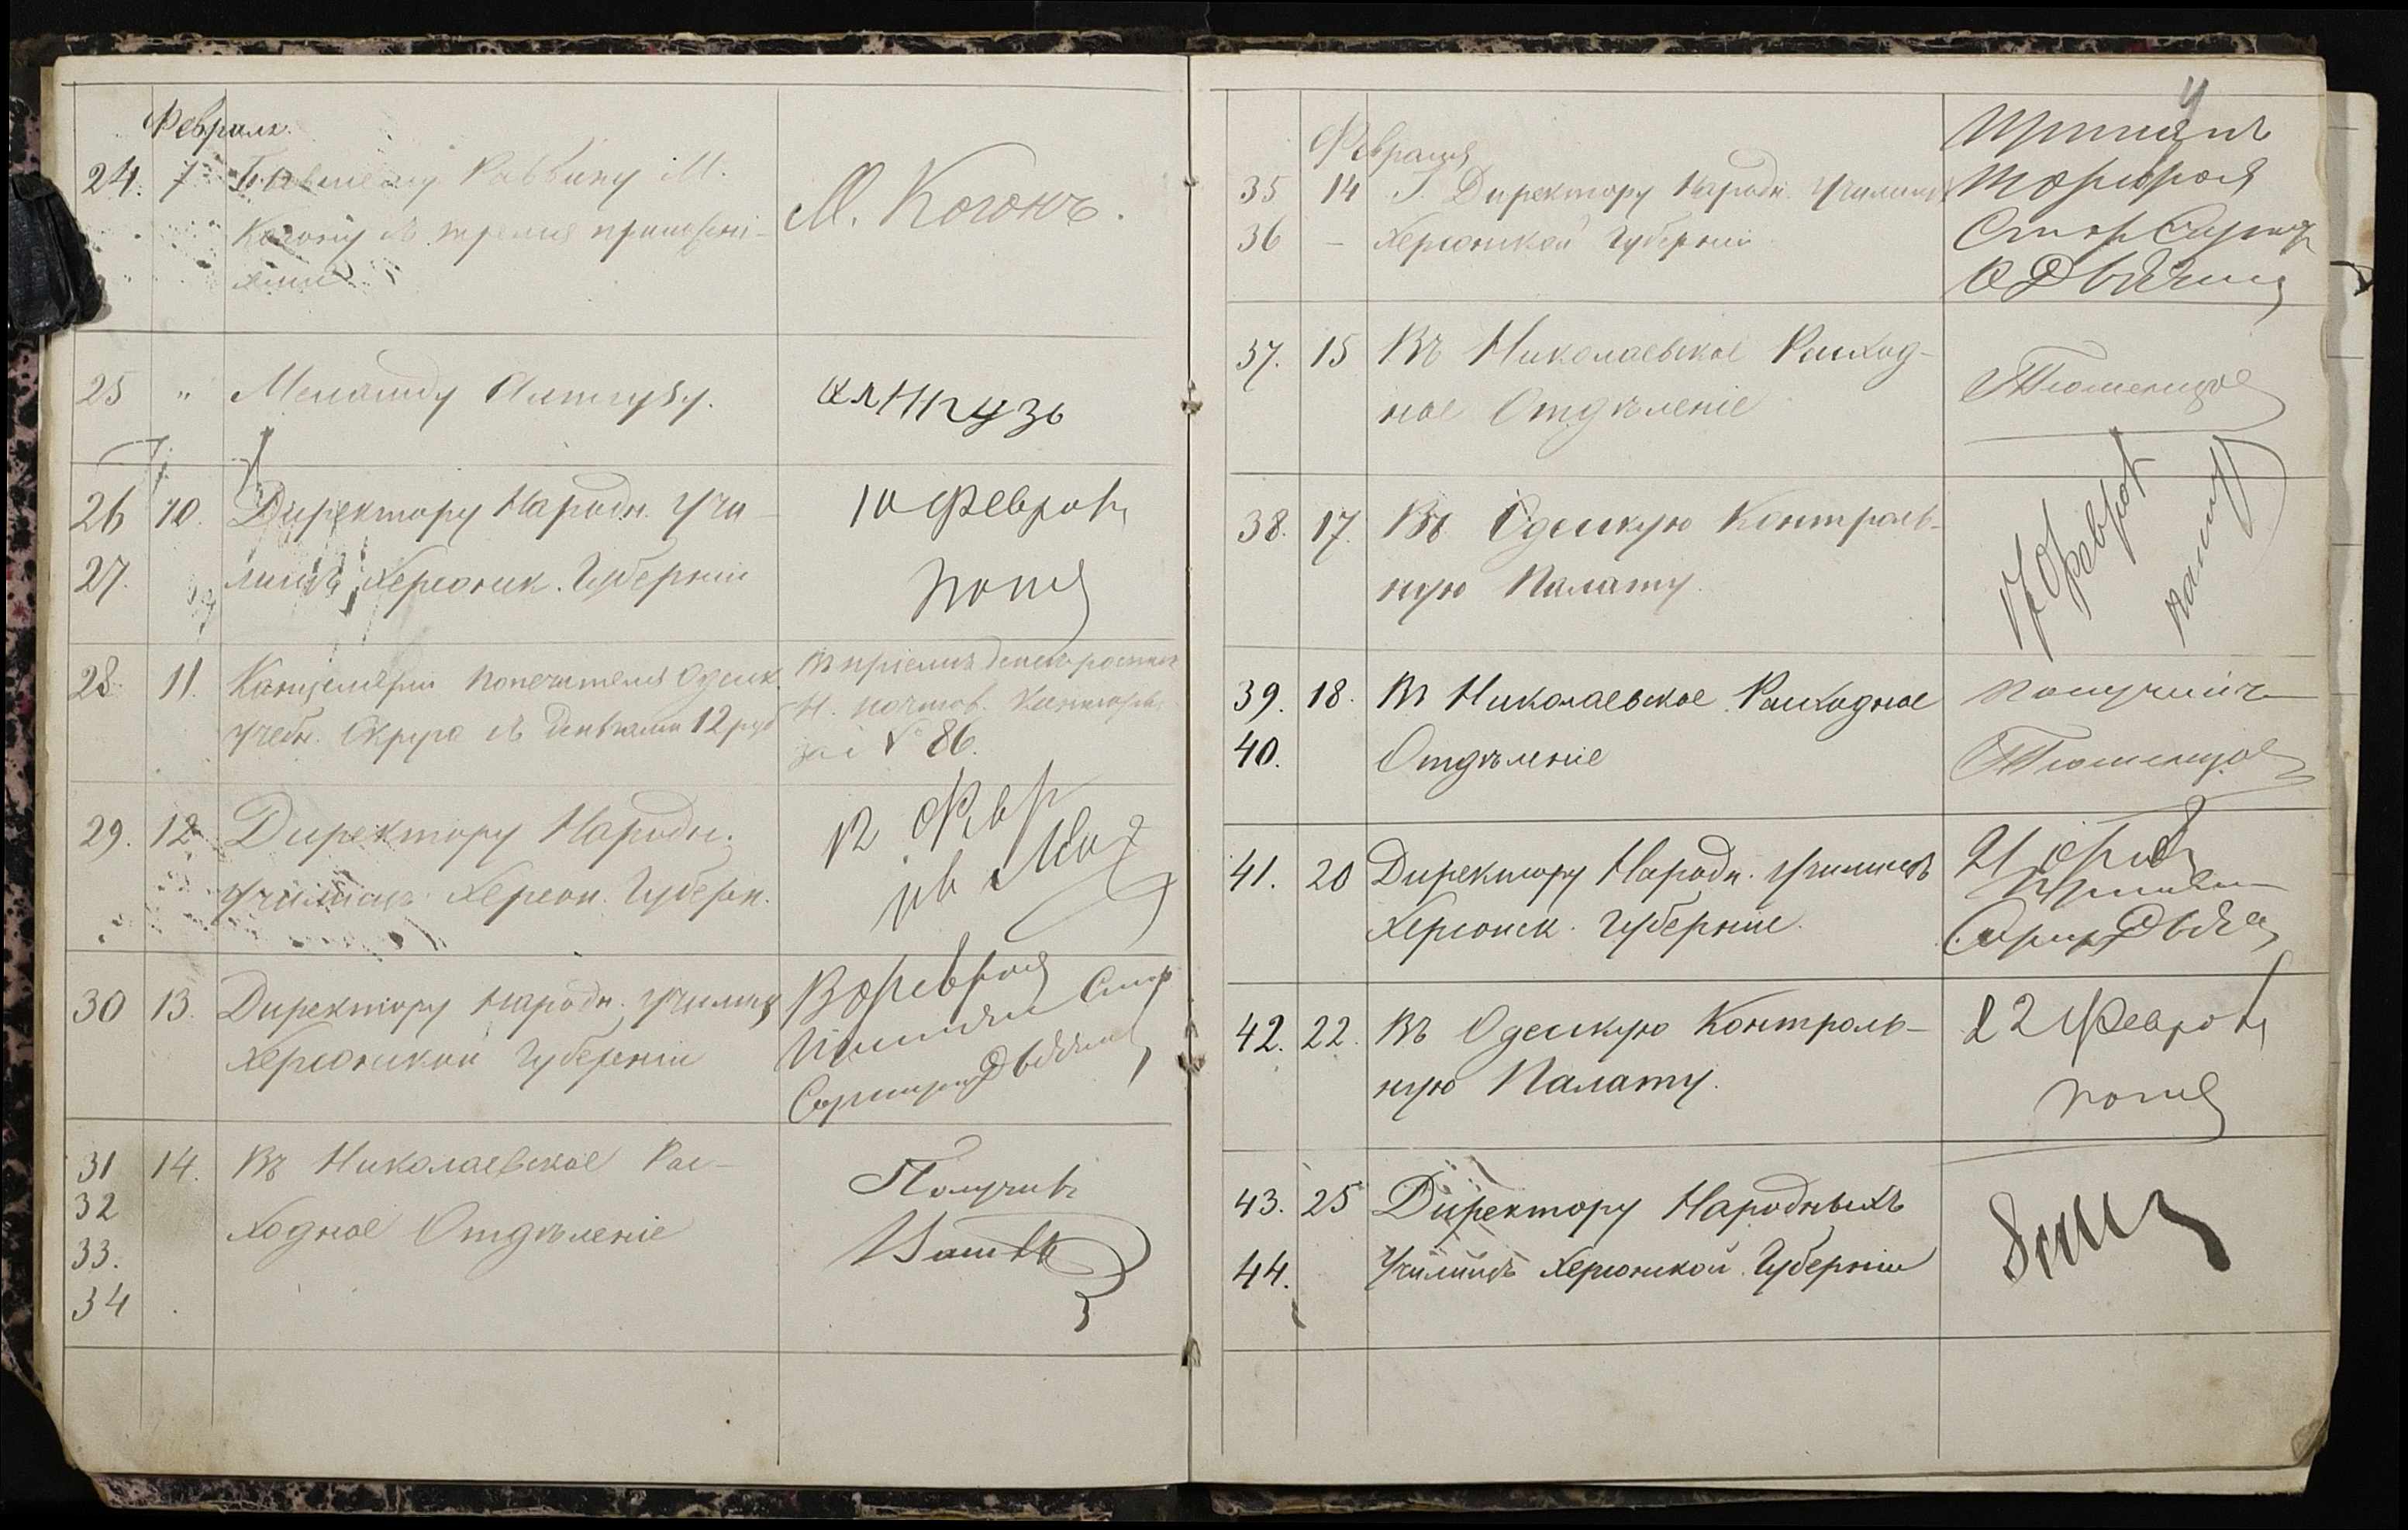 Февраля.
24. 7 Бывшему Раввину М.
Когону съ тремя приложені-
ями
М. Когонъ.
25 " Менашду Алтгузу.
Алтгузъ
26 10. Директору Народн. Учи-
27. лищъ Херсонск. Губерніи
10 Февраля
28. 11. Канцеляріи Попечителя Одесск.
Учебн. Округа съ деньгами 12 руб
Въ пріемѣ
Н. Почтов. Конторы
за № 86.
29. 12. Директору Народн.
Училищъ Херсон. Губерн.
12 Февр
30 13. Директору Народн. Училищ
Херсонской Губерніи
13 Февраля
31 14. Въ Николаевское Рас-
32 ходное Отдѣленіе
33.
34
Получивъ
4
Февраля
35 14 Г. Директору Народн. Училищъ
36 – Херсонской Губерніи
Принялъ
14 Февраля
37. 15 Въ Николаевское Расход-
ное Отдѣленіе
38. 17. Въ Одесскую Контроль-
ную Палату.
17 Феврал
39. 18. Въ Николаевское Расходное
40. Отдѣленіе
Получилъ
41. 20 Директору Народн. Училищъ
Херсонск. Губерніи.
21
42. 22. Въ Одесскую Контроль-
ную Палату.
22 Февраля
43. 25 Директору Народныхъ
44. Училищъ Херсонской Губерніи